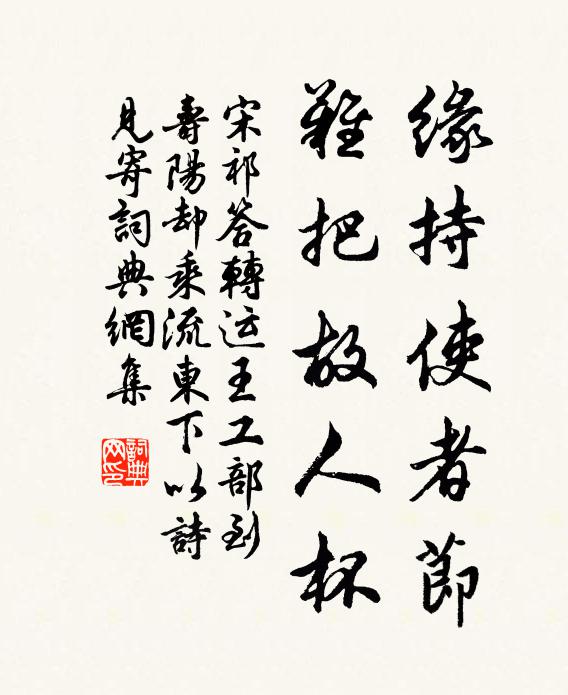 緣持使者節
難把故人杯
宋祁答轉运王工部到
壽陽却乘流東下以詩
見寄詞典網集
詞典
网印